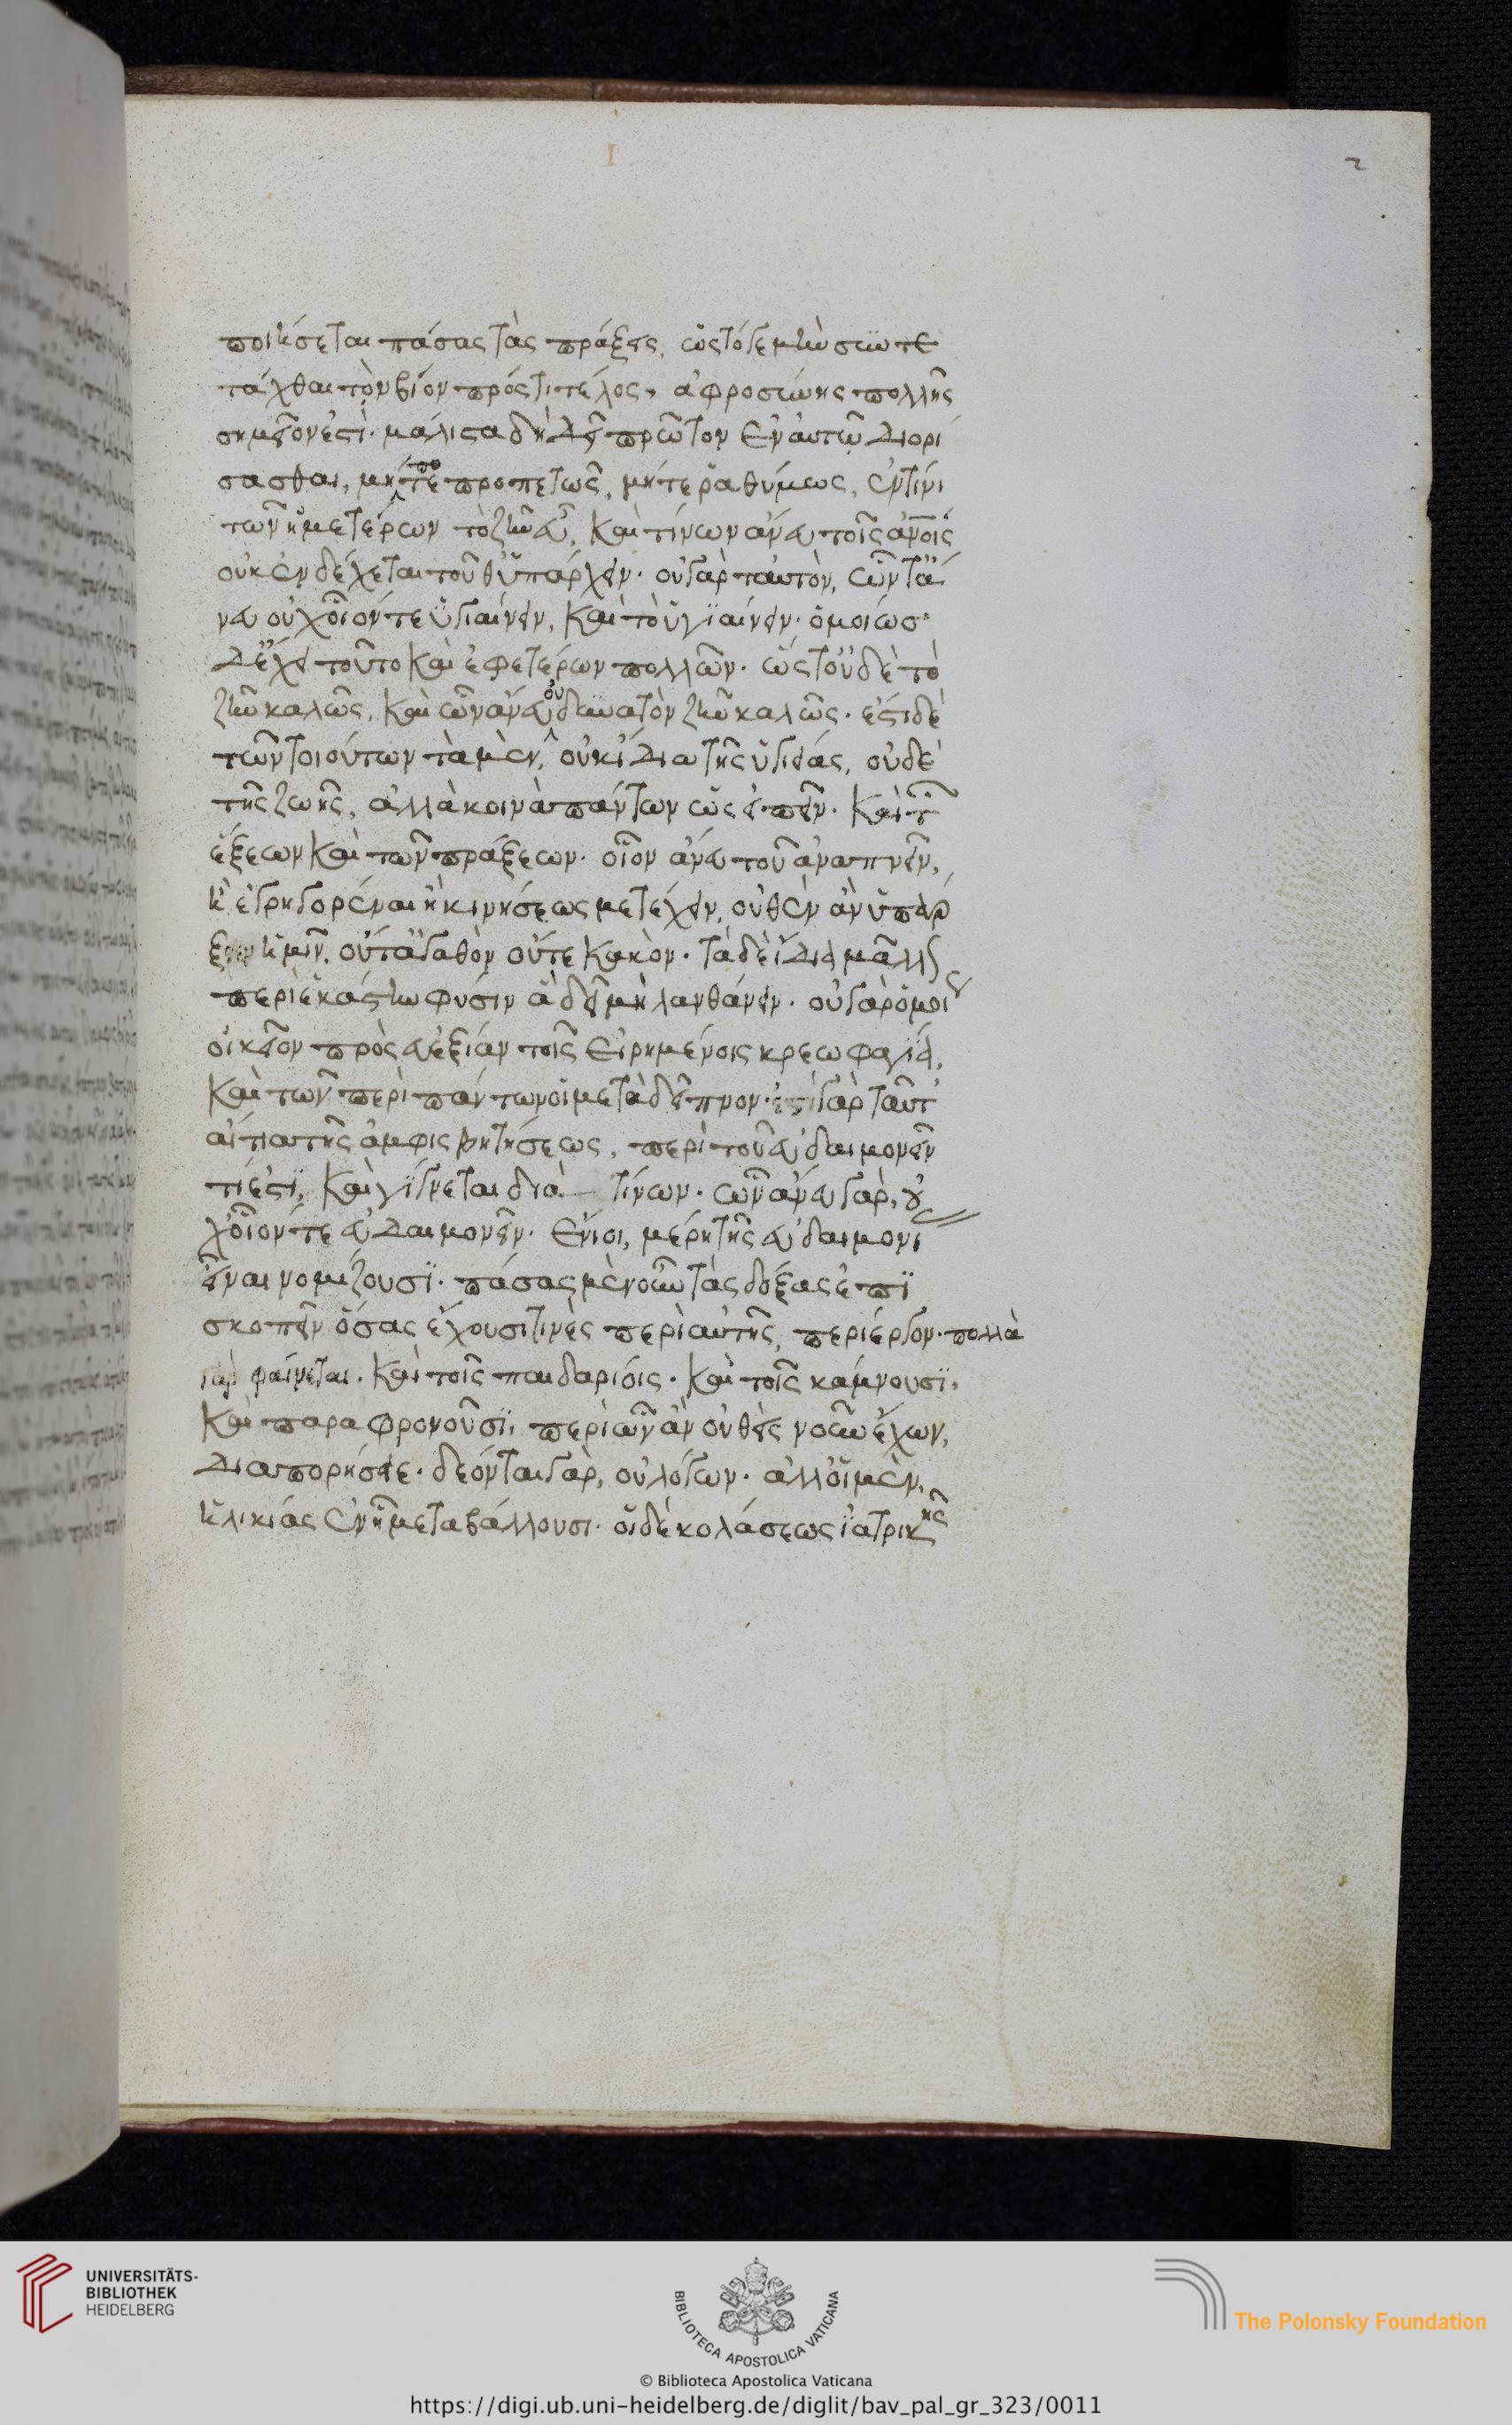 2
ποιήσεται πάσας τὰς πράξεις, ὥς τό γε μὴ συντε
τάχθαι τὸν βίον πρός τι τέλος, ἀφροσύνης πολλῆς
σημεῖον ἐστὶ· μάλιστα δὴ δεῖ πρῶτον ἐν αὑτῷ διορί
σασθαι, μήτε προπετῶς, μήτε ῥαθύμως, ἐν τίνι
τῶν ἡμετέρων τὸ ζῆν εὖ, καὶ τίνων ἄνευ τοῖς ἀν̅οις
οὐκ ἐνδέχεται τοῦθ' ὑπάρχειν· οὐ γὰρ ταυτὸν, ὧν τ' ἄ
νευ οὐχ οἷόν τε ὑγιαίνειν, καὶ τὸ ὑγιαίνειν· ὁμοίως
δ' ἔχει τοῦτο καὶ ἐφ' ἑτέρων πολλῶν· ὥς τ' οὐδὲ τὸ
ζῆν καλῶς, καὶ ὧν ἄνευ οὐ δυνατὸν ζῆν καλῶς· ἔστι δὲ
τῶν τοιούτων τὰ μὲν, οὐκ ἴδια τῆς ὑγιείας, οὐδὲ
τῆς ζωῆς, ἀλλὰ κοινὰ πάντων ὡς εἰπεῖν· καὶ τ̅
ἕξεων καὶ τῶν πράξεων· οἷον ἄνευ τοῦ ἀναπνεῖν,
ἢ ἐγρηγορέναι ἢ κινήσεως μετέχειν, οὐθὲν ἂν ὑπάρ
ξειεν ἡμῖν, οὔτ' ἀγαθὸν οὔτε κακὸν· τὰ δὲ ἴδια μᾶλλ
περὶ ἑκάστην φύσιν ἃ δεῖ μὴ λανθάνειν· οὐ γὰρ ὁμοί
οἰκεῖον πρὸς εὐεξίαν τοῖς εἰρημένοις κρεωφαγία,
καὶ τῶν περιπάτων οἱ μετὰ δεῖπνον· ἔστι γὰρ ταῦτ'
αἴτια τῆς ἀμφισβητήσεως, περὶ τοῦ εὐδαιμονεῖν
τί ἐστι, καὶ γίγνεται διὰ τίνων· ὧν ἄνευ γὰρ, οὐ
χ οἷόν τε εὐδαιμονεῖν· ἔνιοι, μέρη τῆς εὐδαιμονί
εἶναι νομίζουσι· πάσας μὲν οὖν τὰς δόξας ἐπι
σκοπεῖν ὅσας ἔχουσί τινὲς περὶ αὐτῆς, περίεργον· πολλὰ
γὰρ φαίνεται· καὶ τοῖς παιδαρίοις· καὶ τοῖς κάμνουσι,
καὶ παραφρονοῦσι, περὶ ὧν ἂν οὐθεὶς νοῦν ἔχων,
διαπορήσειε· δέονται γὰρ, οὐ λόγων· ἀλλ' οἱ μὲν,
ἡλικίας ἐν ᾗ μεταβάλλουσι· οἱ δὲ κολάσεως ἰατρικῆς
UNIVERSITÄTS-
BIBLIOTHEK
HEIDELBERG
BIBLIOTECA APOSTOLICA VATICANA
The Polonsky Foundation
© Biblioteca Apostolica Vaticana
https://digi.ub.uni-heidelberg.de/diglit/bav_pal_gr_323/0011